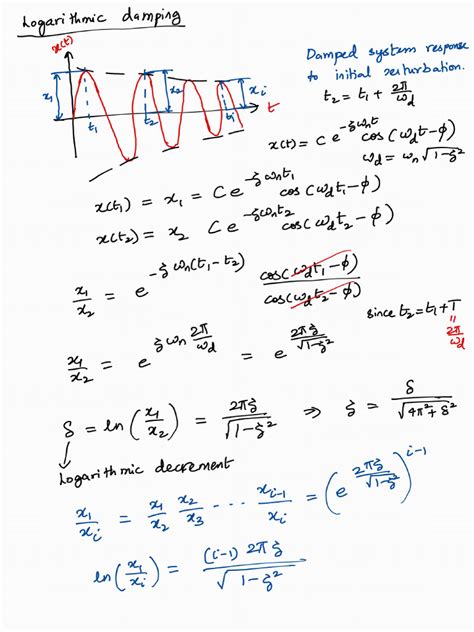 Logarithmic damping
x(t)
x₁
x₂
xᵢ
t₁
t₂
tᵢ
t
Damped system response
to initial perturbation.
t₂ = t₁ + 2π/ω_d
x(t) = C e^(-ζω_n t) cos(ω_d t - φ)
ω_d = ω_n √(1-ζ²)
x(t₁) = x₁ = C e^(-ζω_n t₁) cos(ω_d t₁ - φ)
x(t₂) = x₂ C e^(-ζω_n t₂) cos(ω_d t₂ - φ)
x₁/x₂ = e^(-ζω_n(t₁-t₂)) cos(ω_d t₁ - φ)/cos(ω_d t₂ - φ)
since t₂ = t₁ + T
= 2π/ω_d
x₁/x₂ = e^(ζω_n 2π/ω_d) = e^(2πζ/√(1-ζ²))
δ = ln(x₁/x₂) = 2πζ/√(1-ζ²) ⇒ ζ = δ/√(4π²+δ²)
Logarithmic decrement
x₁/xᵢ = x₁/x₂ x₂/x₃ ... xᵢ₋₁/xᵢ = (e^(2πζ/√(1-ζ²)))^(i-1)
ln(x₁/xᵢ) = (i-1) 2πζ/√(1-ζ²)